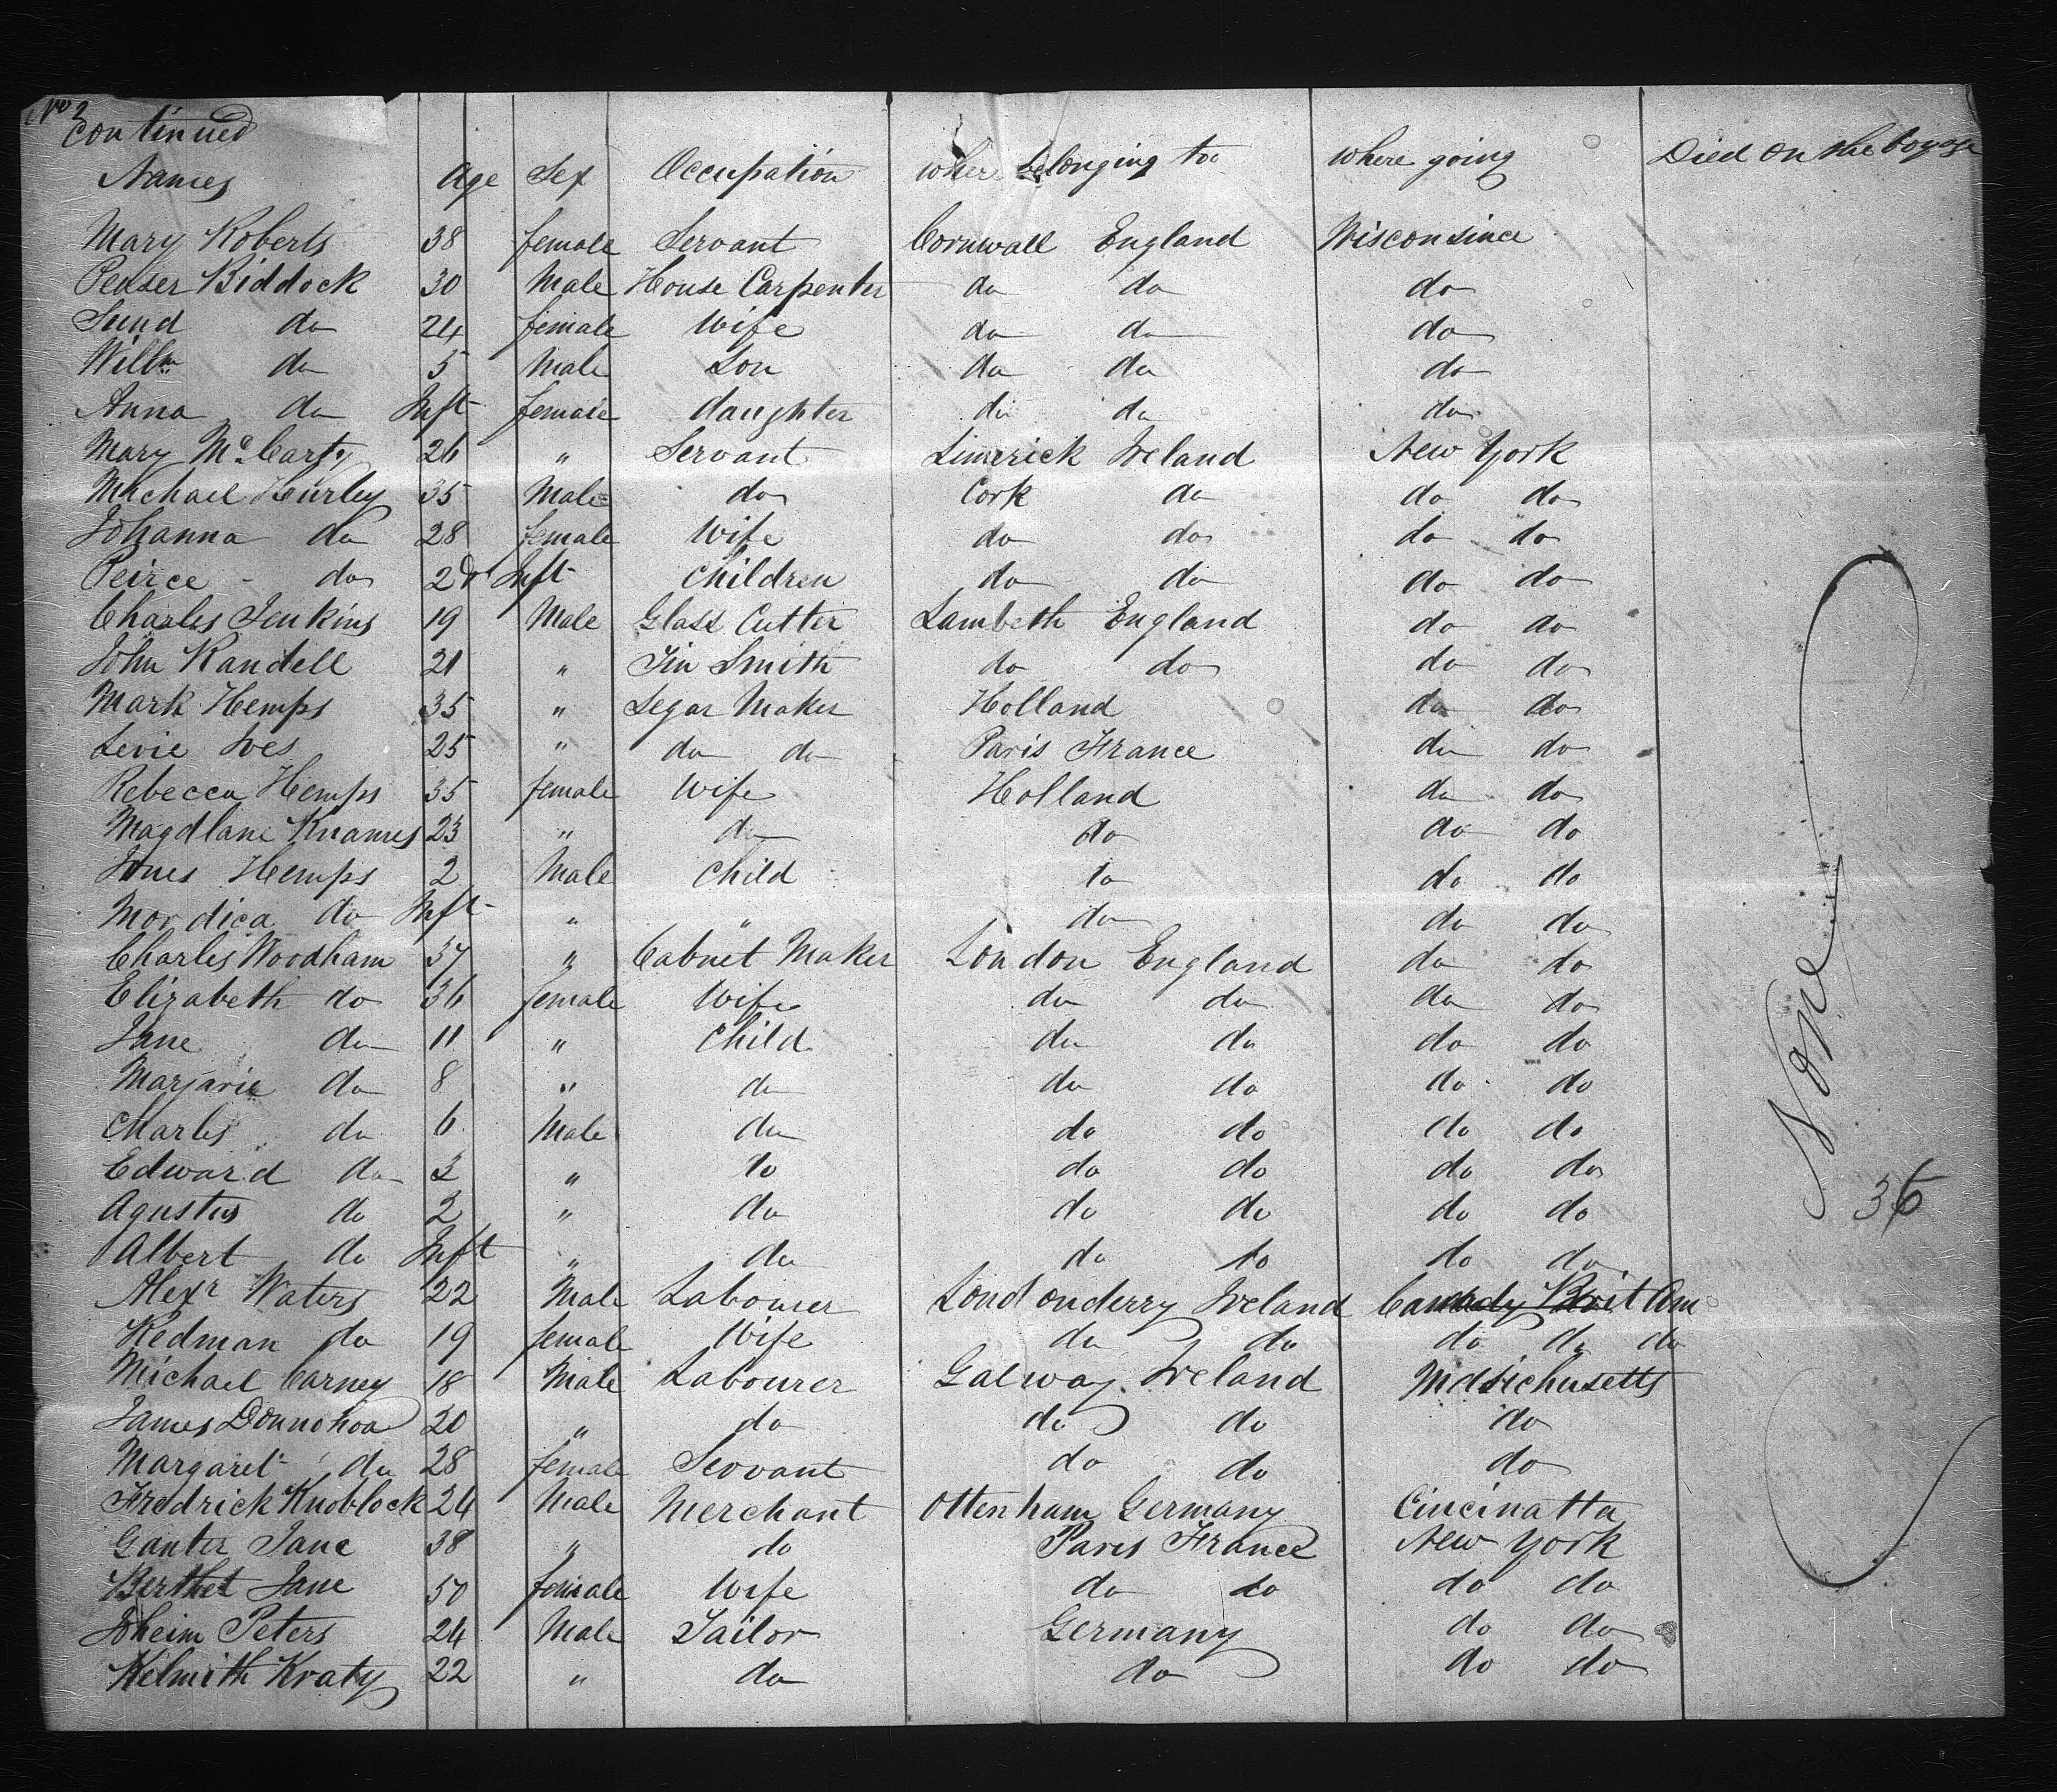 No 2
Continued
Names Age Sex Occupation where belonging too where going Died on the Voyage
Mary Roberts 38 female Servant Cornwall England Wisconsince
Penser Riddock 30 Male House Carpenter do do do
do 24 female Wife do do do
Willm do 5 Male Son do do do
Anna do Inft female daughter do do do
Mary McCarty 26 " Servant Limerick Ireland New York
Michael Hurley 35 Male do Cork do do do
Johanna do 28 female Wife do do do do
Peirce - do 2 & Inft Children do do do do
Charles Jenkins 19 Male Glass Cutter Lambeth England do do
John Randell 21 " Tin Smith do do do do
Mark Hemps 35 " Segar Maker Holland do do
Levie Ives 25 " do do Paris France do do
Rebecca Hemps 35 female Wife Holland do do
Magdlane Knames 23 " do do do do
Hemps 2 Male Child do do do
Mordica do Inft " " do do do
Charles Woodham 37 " Cabnet Maker London England do do
Elizabeth do 36 female Wife do do do do
Jane do 11 " Child do do do do
Marjarie do 8 " do do do do do
Charles do 6 Male do do do do do
Edward do 3 " do do do do do
Agustus do 2 " do do do do do
Albert do Inft " do do do do do
Alexr Waters 22 Male Labourer Londonderry Ireland Canady Brit Am
Redman do 19 female Wife do do do do do
Michael Carney 18 Male Labourer Galway Ireland Massichusetts
James Donnohoa 20 " do do do do
Margaret do 28 female Servant do do do
Fredrick Knoblock 24 Male Merchant Ottenham Germany Cincinatta
Ganter Jane 38 " do Paris France New York
Berthet Jane 50 female Wife do do do do
Joheim Peters 24 Male Tailor Germany do do
Helmith Kraty 22 " do do do do
None
36